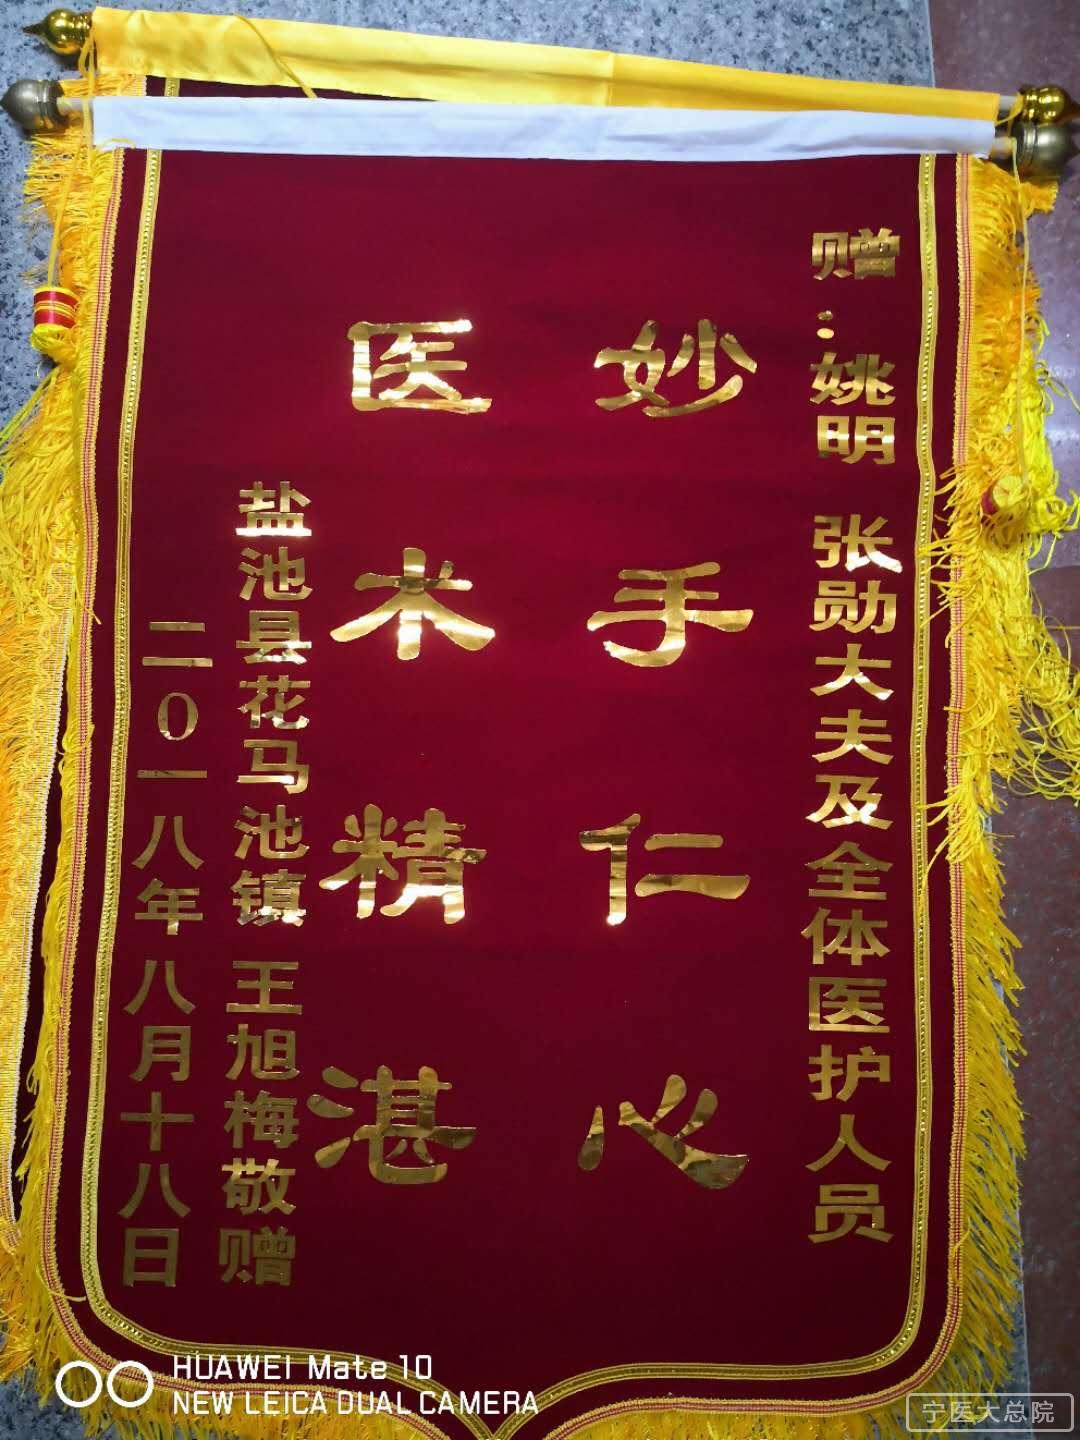 赠:姚明 张勋大夫及全体医护人员
妙手仁心
医术精湛
盐池县花马池镇 王旭梅敬赠
二0一八年八月十八日
HUAWEI Mate 10
NEW LEICA DUAL CAMERA
宁医大总院